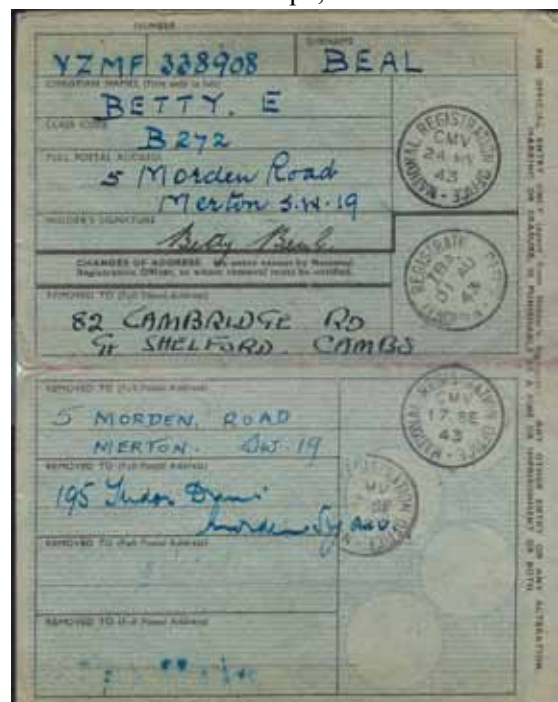 NUMBER
SURNAME
YZMF 338908 BEAL
CHRISTIAN NAMES (First only in full)
BETTY. E
CLASS CODE
B272
FULL POSTAL ADDRESS
5 Morden Road
Merton S.W.19
HOLDER'S SIGNATURE
Betty Beal.
CHANGES OF ADDRESS. No entry except by National
Registration Officer, to whom removal must be notified.
REMOVED TO (Full Postal Address)
82 CAMBRIDGE RD
GT SHELFORD. CAMBS
REMOVED TO (Full Postal Address)
5 MORDEN, ROAD
MERTON. SW.19
REMOVED TO (Full Postal Address)
195 Tudor Drive
Morden
REMOVED TO (Full Postal Address)
REMOVED TO (Full Postal Address)
NATIONAL REGISTRATION OFFICE
CMV
24 MY
43
REGISTRATION
01 AU
43
NATIONAL REGISTRATION OFFICE
CMV
17 SE
43
REGISTRATION OFFICE
ANY OTHER ENTRY OR ANY ALTERATION
MARKING OR ERASURE, IS PUNISHABLE BY A FINE OR IMPRISONMENT OR BOTH